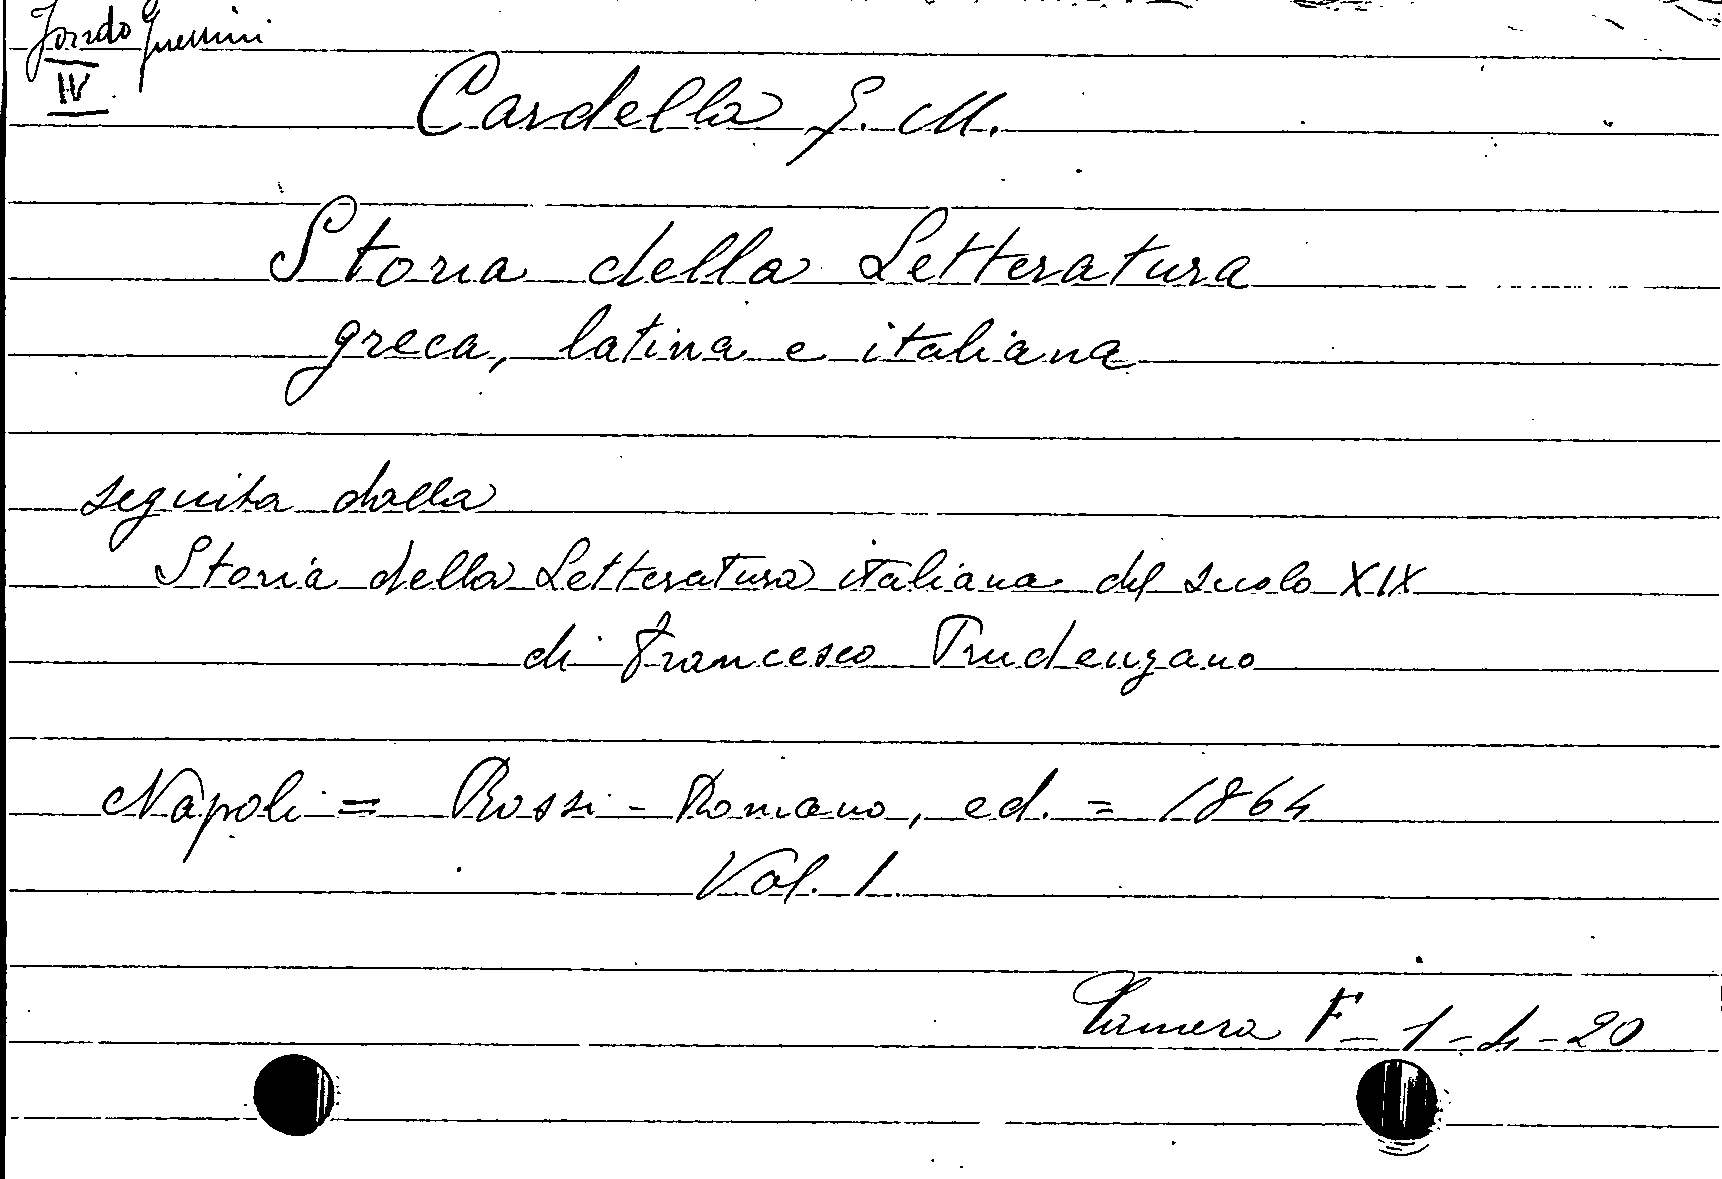 Fondo Guerrini
IV
Cardella G. M.
Storia della Letteratura
greca, latina e italiana
seguita dalla
Storia della Letteratura italiana del secolo XIX
di Francesco Prudenzano
Napoli = Rossi - Romano, ed. = 1864
Vol. 1
Camera F - 1 - 4 - 20